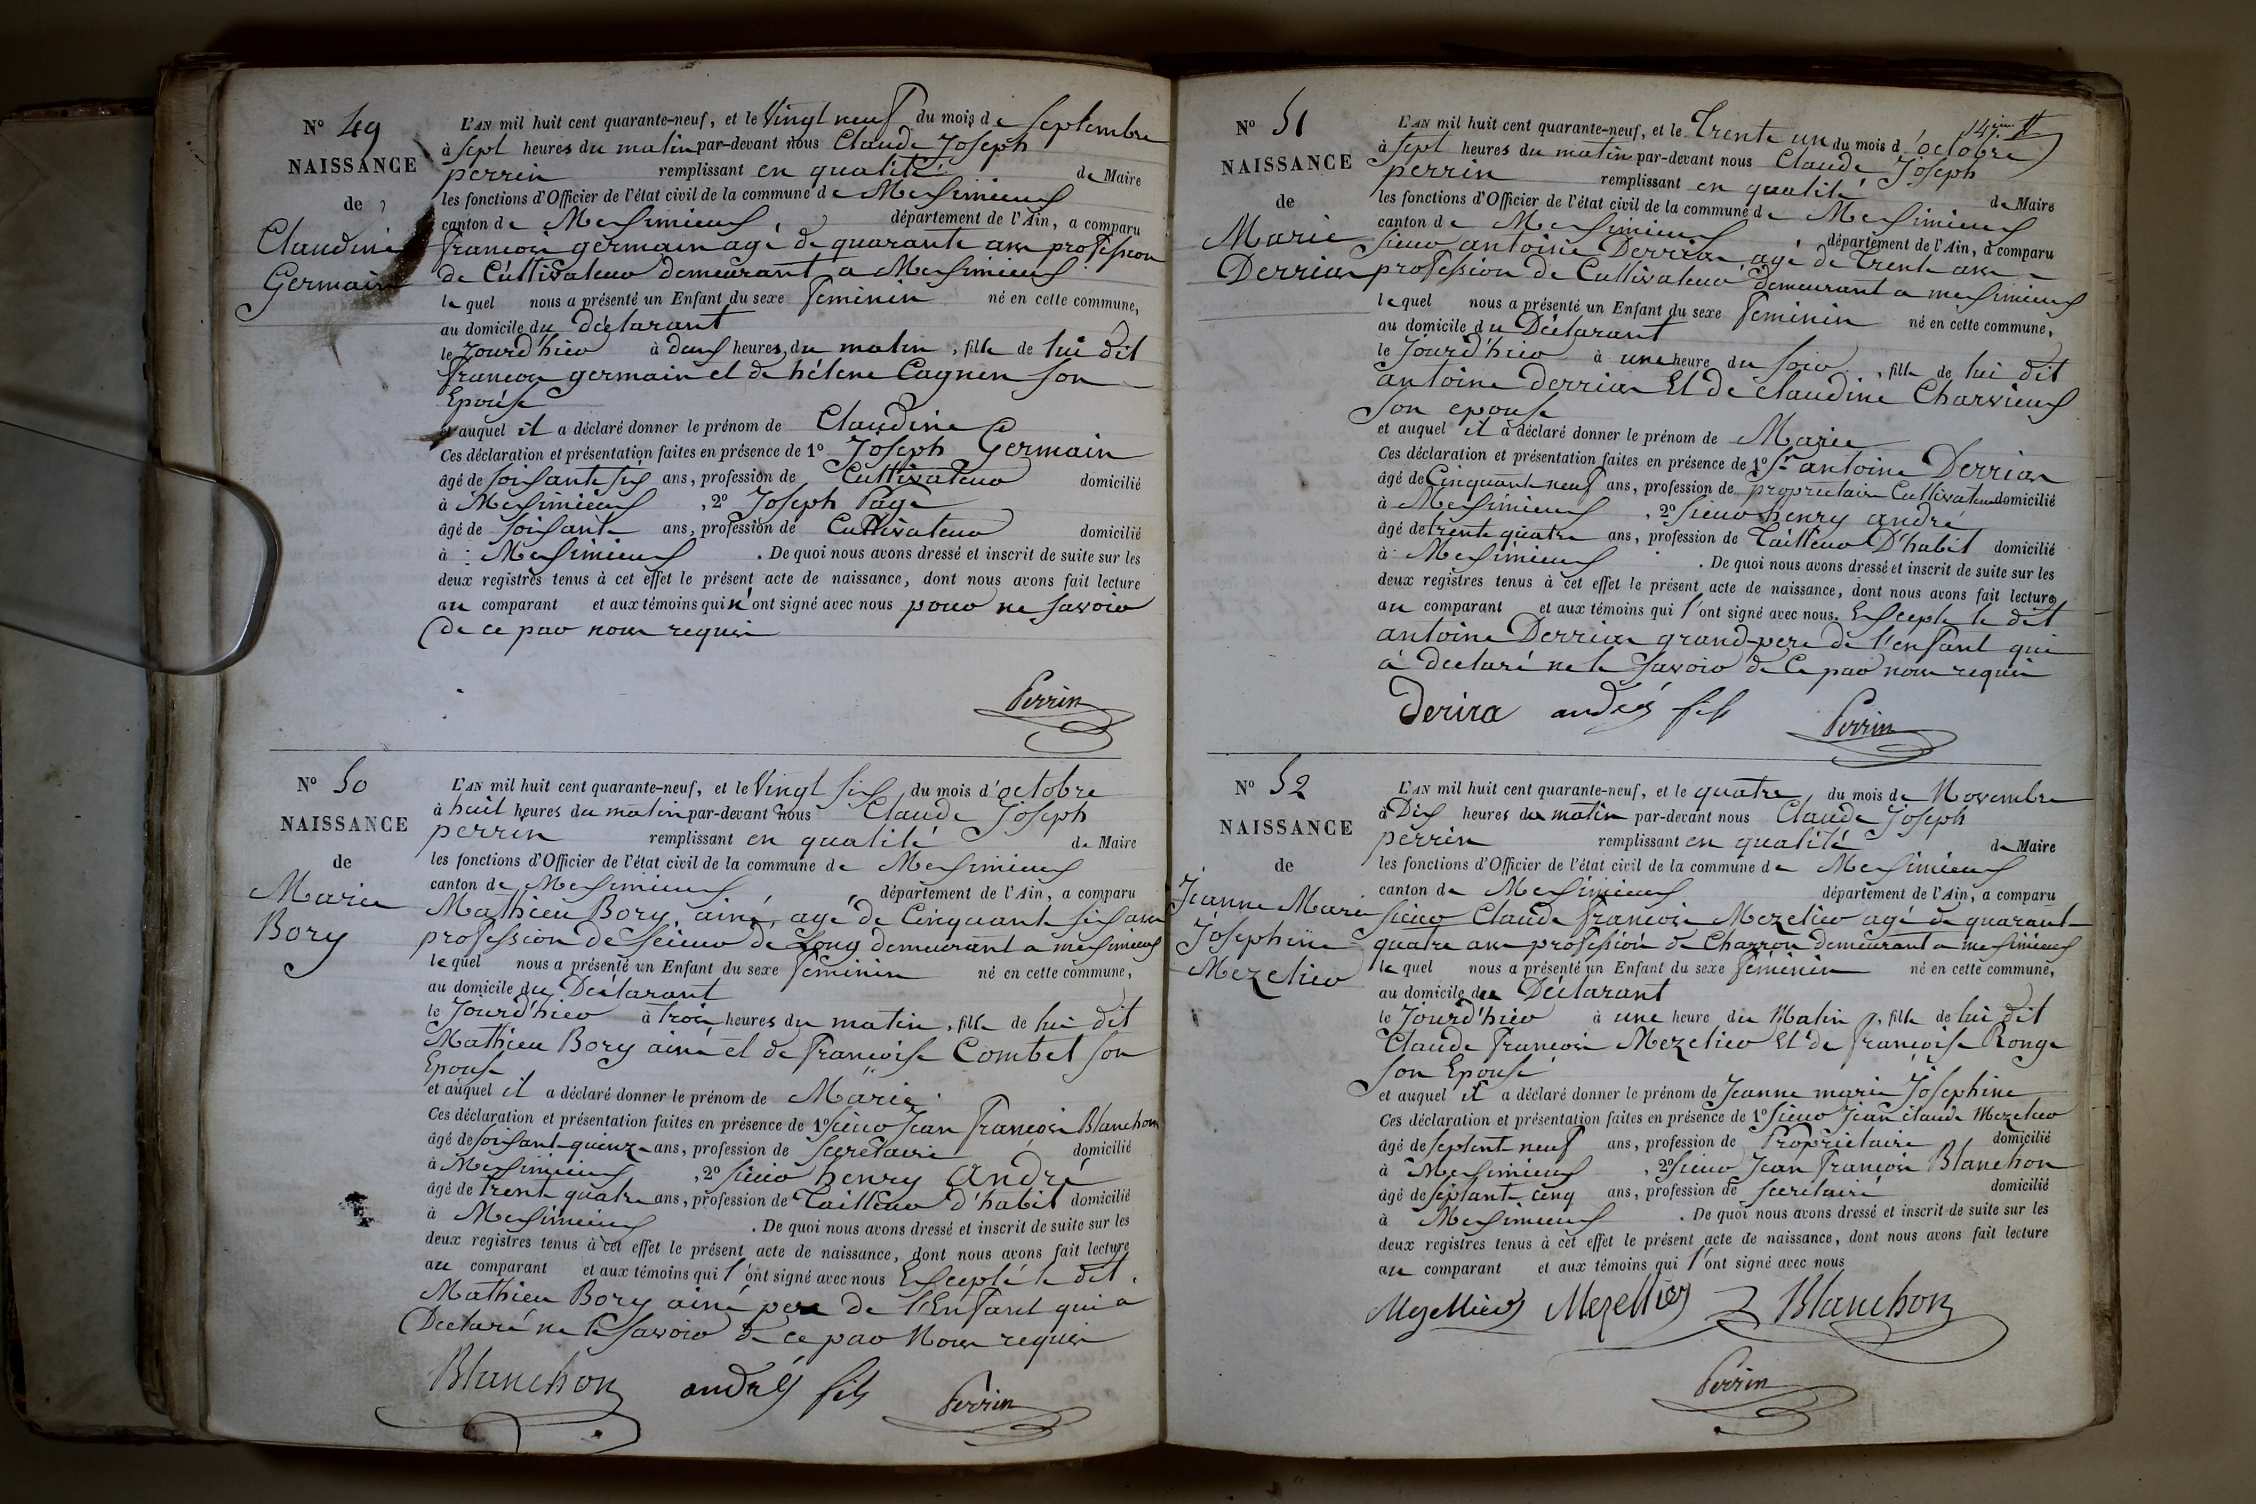 N° 49
NAISSANCE
de
Claudine
Germain
L'AN mil huit cent quarante-neuf, et le Vingt neuf du mois de Septembre
à Sept heures du matin par-devant nous Claude Joseph
perrin remplissant en qualité de Maire
les fonctions d'Officier de l'état civil de la commune de Messimieux
canton de Messimieux département de l'Ain, a comparu
francois germain agé de quarante ans profession
de Cultivateur demeurant a Messimieux
lequel nous a présenté un Enfant du sexe feminin né en cette commune,
au domicile du déclarant
le Jourd'hier à deux heures du matin, fille de lui dit
francois germain et de hélene Cagnin son
Epouse
et auquel il a déclaré donner le prénom de Claudine
Ces déclaration et présentation faites en présence de 1° Joseph Germain
âgé de soixante six ans, profession de Cultivateur domicilié
à Messimieux, 2° Joseph Page
âgé de soixante ans, profession de Cultivateur domicilié
à Messimieux. De quoi nous avons dressé et inscrit de suite sur les
deux registres tenus à cet effet le présent acte de naissance, dont nous avons fait lecture
au comparant et aux témoins qui n'ont signé avec nous pour ne savoir
de ce par nous requis
Perrin
N° 50
NAISSANCE
de
Marie
Bory
L'AN mil huit cent quarante-neuf, et le Vingt six du mois d'octobre
à huit heures du matin par-devant nous Claude Joseph
perrin remplissant en qualité de Maire
les fonctions d'Officier de l'état civil de la commune de Messimieux
canton de Messimieux département de l'Ain, a comparu
Mathieu Bory ainé, agé de Cinquante six ans
profession de Scieur de Long demeurant a messimieux
lequel nous a présenté un Enfant du sexe féminin né en cette commune,
au domicile du Déclarant
le Jourd'hier à trois heures du matin, fille de lui dit
Mathieu Bory ainé et de francoise Combet son
Epouse
et auquel il a déclaré donner le prénom de Marie
Ces déclaration et présentation faites en présence de 1° Sieur Jean François Blanchon
âgé de soixant quinze ans, profession de Secretaire domicilié
à Messimieux, 2° Sieur henry André
âgé de trente quatre ans, profession de Tailleur d'habit domicilié
à Messimieux. De quoi nous avons dressé et inscrit de suite sur les
deux registres tenus à cet effet le présent acte de naissance, dont nous avons fait lecture
au comparant et aux témoins qui l'ont signé avec nous Excepté le dit
Mathieu Bory ainé pere de l'Enfant qui a
Déclaré ne le savoir de ce par Nous requis
Blanchon andré fils Perrin
N° 51
NAISSANCE
de
Marie
Derrias
L'AN mil huit cent quarante-neuf, et le Trente un du mois d'octobre
à sept heures du matin par-devant nous Claude Joseph
perrin remplissant en qualité de Maire
les fonctions d'Officier de l'état civil de la commune de Messimieux
canton de Messimieux département de l'Ain, a comparu
Sieur antoine Derrias agé de Trente ans
profession de Cultivateur demeurant a messimieux
lequel nous a présenté un Enfant du sexe feminin né en cette commune,
au domicile du Déclarant
le Jourd'hier à une heure du soir, fille de lui dit
antoine Derrias Et de Claudine Charvieux
son epouse
et auquel il a déclaré donner le prénom de Marie
Ces déclaration et présentation faites en présence de 1° Sr antoine Derrias
âgé de Cinquante neuf ans, profession de propriétaire Cultivateur domicilié
à Messimieux, 2° Sieur henry andré
âgé de trente quatre ans, profession de Tailleur D'habit domicilié
à Messimieux. De quoi nous avons dressé et inscrit de suite sur les
deux registres tenus à cet effet le présent acte de naissance, dont nous avons fait lecture
au comparant et aux témoins qui l'ont signé avec nous. Excepté le dit
antoine Derrias grand-pere de l'enfant qui
à déclaré ne le savoir de Ce par nous requis
Derira andré fils Perrin
N° 52
NAISSANCE
de
Jeanne Marie
Joséphine
Mezelier
L'AN mil huit cent quarante-neuf, et le quatre du mois de Novembre
à Dix heures du matin par-devant nous Claude Joseph
perrin remplissant en qualité de Maire
les fonctions d'Officier de l'état civil de la commune de Messimieux
canton de Messimieux département de l'Ain, a comparu
Sieur Claude francois Mezelier agé de quarante
quatre ans profession de Charron demeurant a messimieux
lequel nous a présenté un Enfant du sexe féminin né en cette commune,
au domicile du Déclarant
le Jourd'hier à une heure du Matin, fille de lui dit
Claude francois Mezelier Et de françoise Ronge
son Epouse
et auquel il a déclaré donner le prénom de Jeanne marie Joséphine
Ces déclaration et présentation faites en présence de 1° Sieur Jean claude Mezelier
âgé de septent neuf ans, profession de Propriétaire domicilié
à Messimieux, 2° Sieur Jean François Blanchon
âgé de septante cinq ans, profession de secretaire domicilié
à Messimieux. De quoi nous avons dressé et inscrit de suite sur les
deux registres tenus à cet effet le présent acte de naissance, dont nous avons fait lecture
au comparant et aux témoins qui l'ont signé avec nous
Mezellier Mezellier Blanchon
Perrin